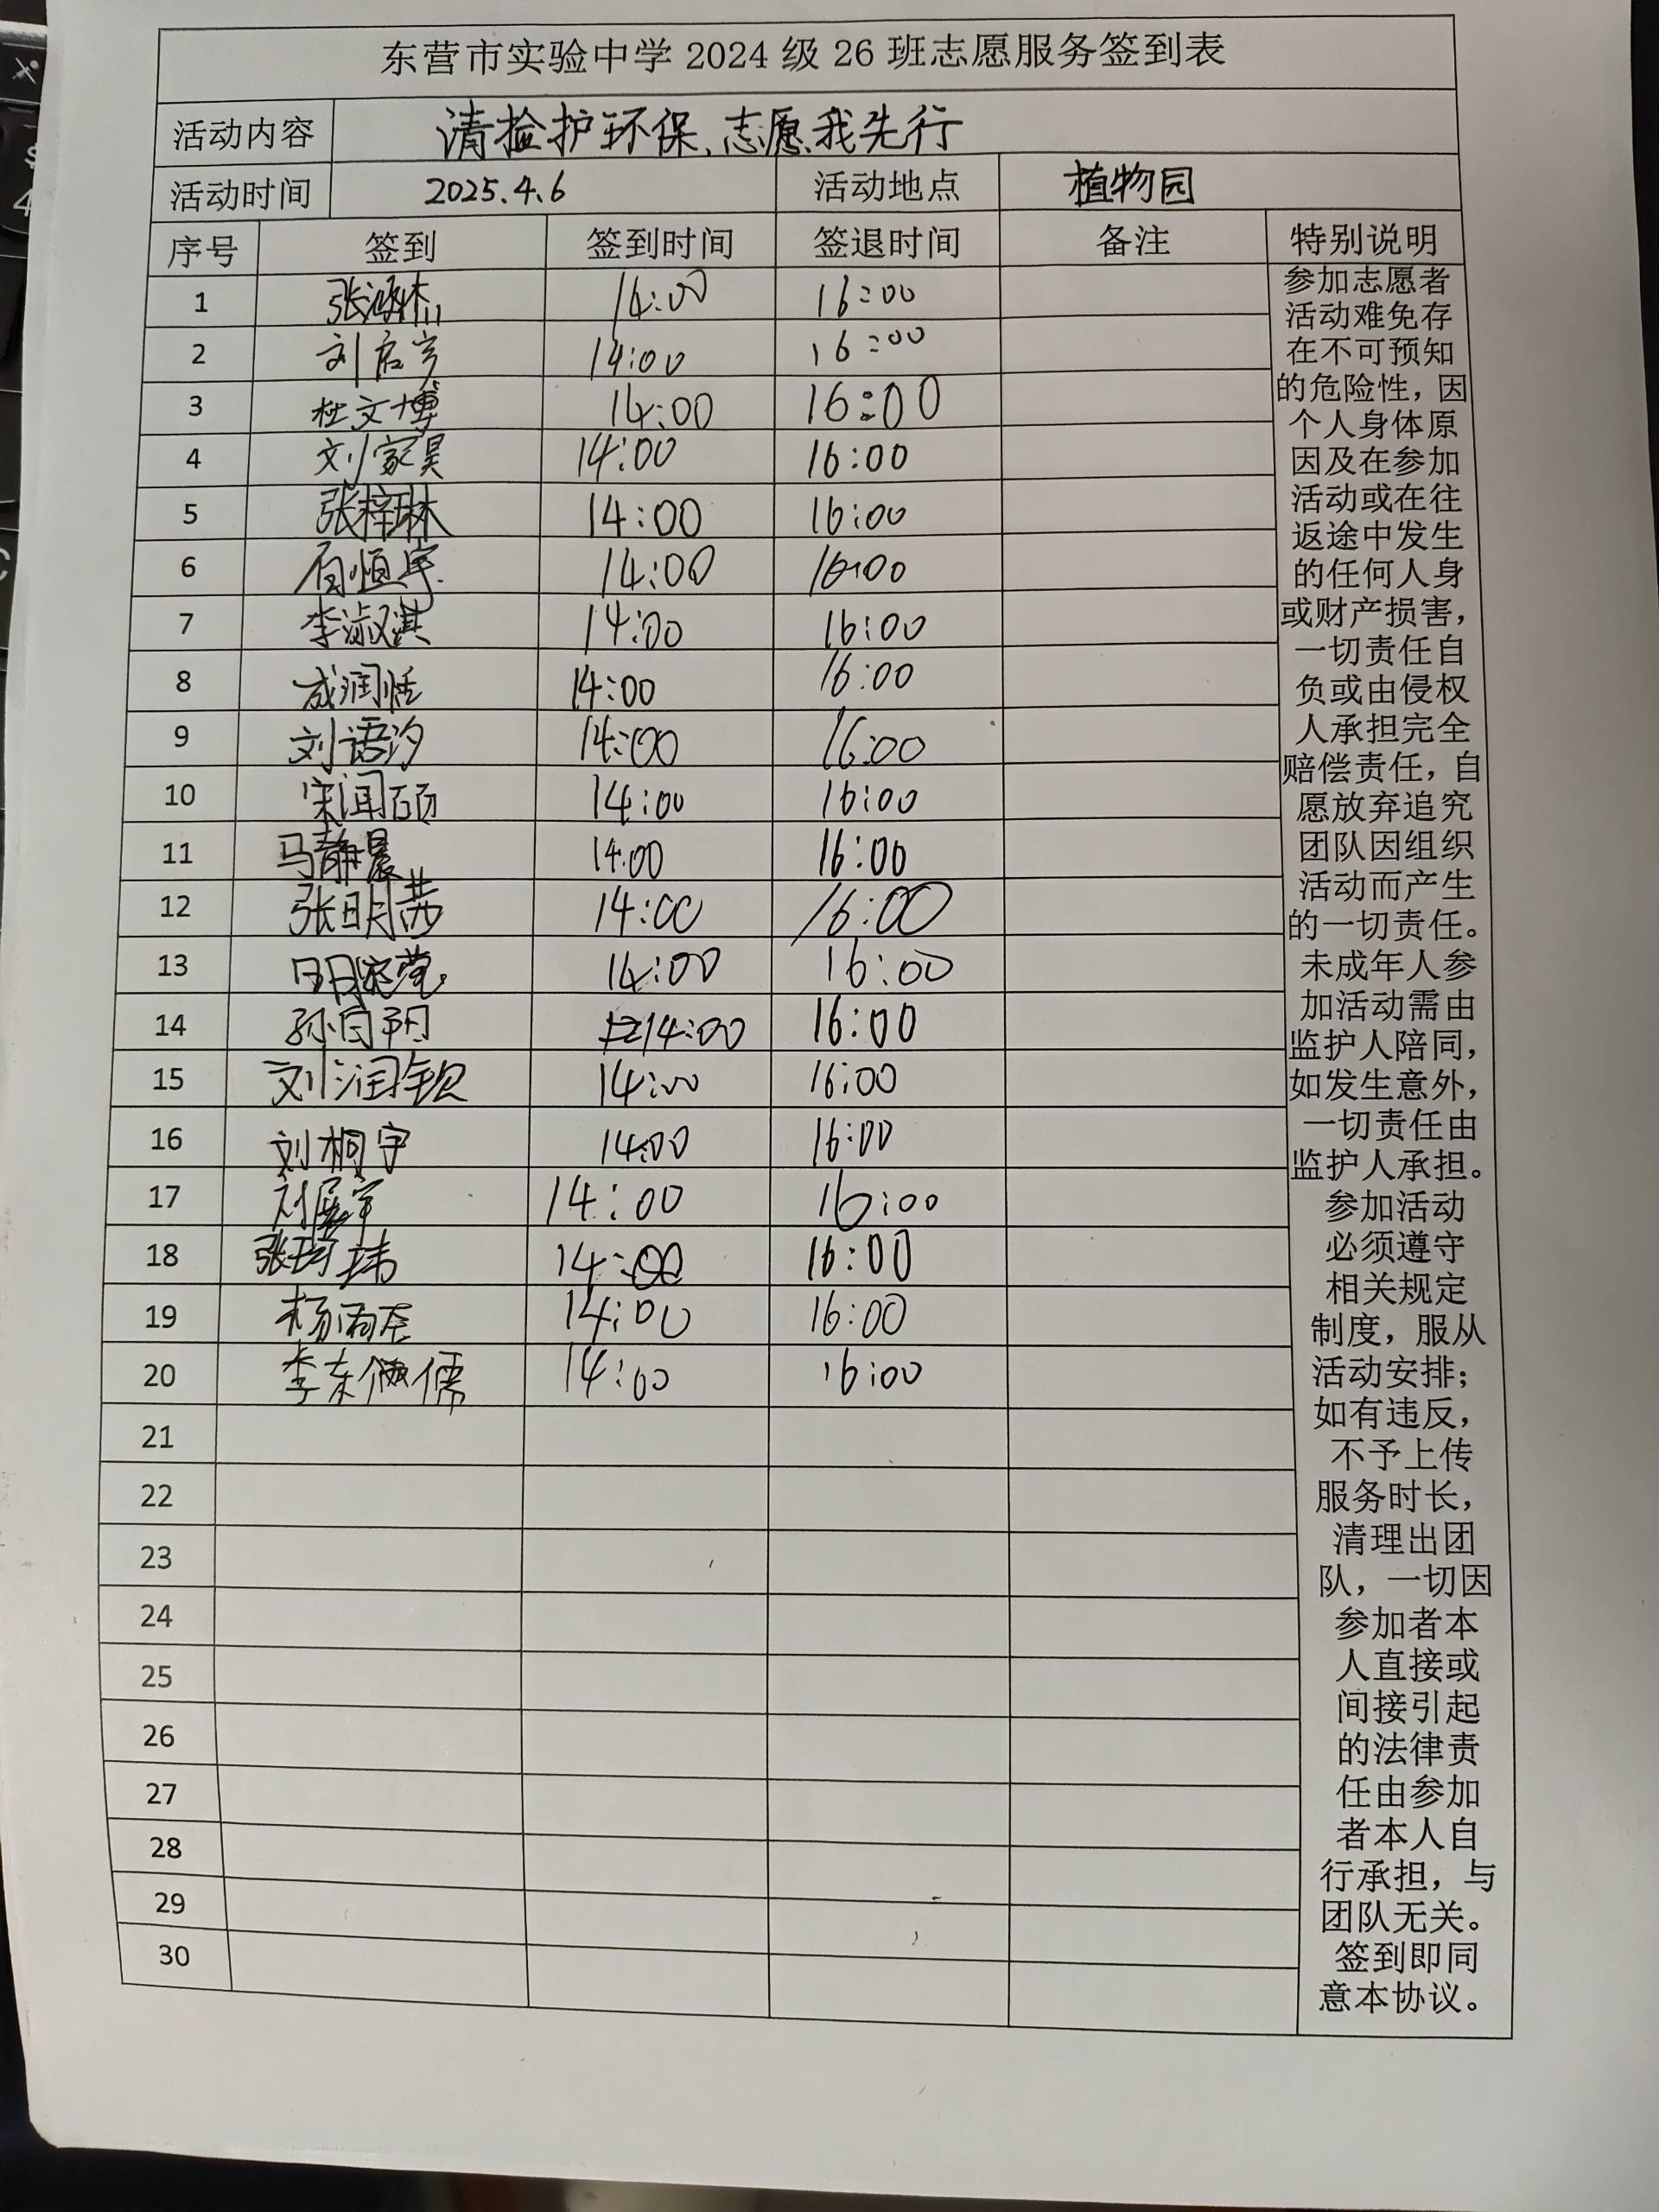 东营市实验中学 2024 级 26 班志愿服务签到表
活动内容 清捡护环保、志愿我先行
活动时间 2025.4.6 活动地点 植物园
序号 签到 签到时间 签退时间 备注 特别说明
1 14:00 16:00
2 刘启宇 14:00 16:00
3 杜文博 14:00 16:00
4 刘家昊 14:00 16:00
5 张梓琳 14:00 16:00
6 14:00 16:00
7 李淑淇 14:00 16:00
8 成润恬 14:00 16:00
9 刘语汐 14:00 16:00
10 宋闻硕 14:00 16:00
11 马静晨 14:00 16:00
12 张明茜 14:00 16:00
13 14:00 16:00
14 14:00 16:00
15 刘润钦 14:00 16:00
16 刘桐宇 14:00 16:00
17 刘展宇 14:00 16:00
18 张珂玮 14:00 16:00
19 14:00 16:00
20 14:00 16:00
21
22
23
24
25
26
27
28
29
30
参加志愿者
活动难免存
在不可预知
的危险性，因
个人身体原
因及在参加
活动或在往
返途中发生
的任何人身
或财产损害，
一切责任自
负或由侵权
人承担完全
赔偿责任，自
愿放弃追究
团队因组织
活动而产生
的一切责任。
未成年人参
加活动需由
监护人陪同，
如发生意外，
一切责任由
监护人承担。
参加活动
必须遵守
相关规定
制度，服从
活动安排；
如有违反，
不予上传
服务时长，
清理出团
队，一切因
参加者本
人直接或
间接引起
的法律责
任由参加
者本人自
行承担，与
团队无关。
签到即同
意本协议。